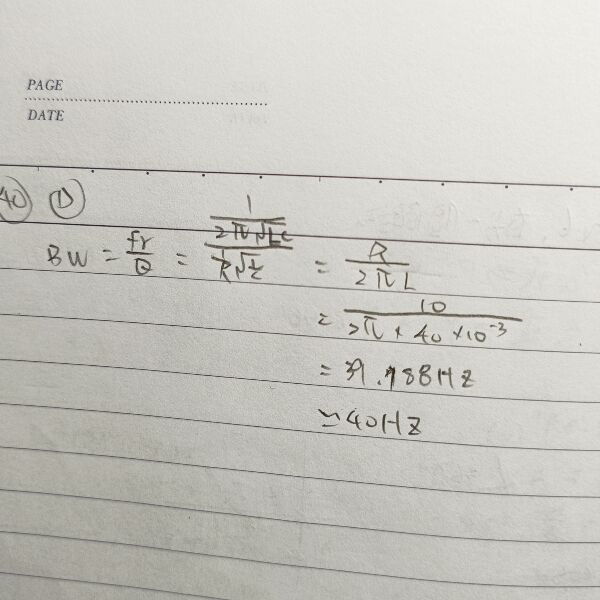 PAGE
DATE
40 D
BW = fr/Q = (1/(2π√LC))/((1/R)√(L/C)) = R/(2πL)
= 10/(2π × 40 × 10⁻³)
= 39.788HZ
≃ 40HZ